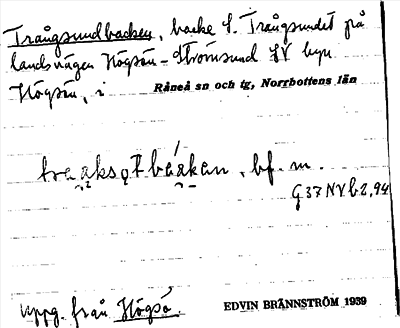 Trångsundbacken, backe S. Trångsundet på
landsvägen Högsön - Strömsund SV byn
Högsön, i Råneå sn och tg, Norrbottens län
bf. m.
G 37 NV b 2, 94
uppg. från Högsö.
EDVIN BRÄNNSTRÖM 1939